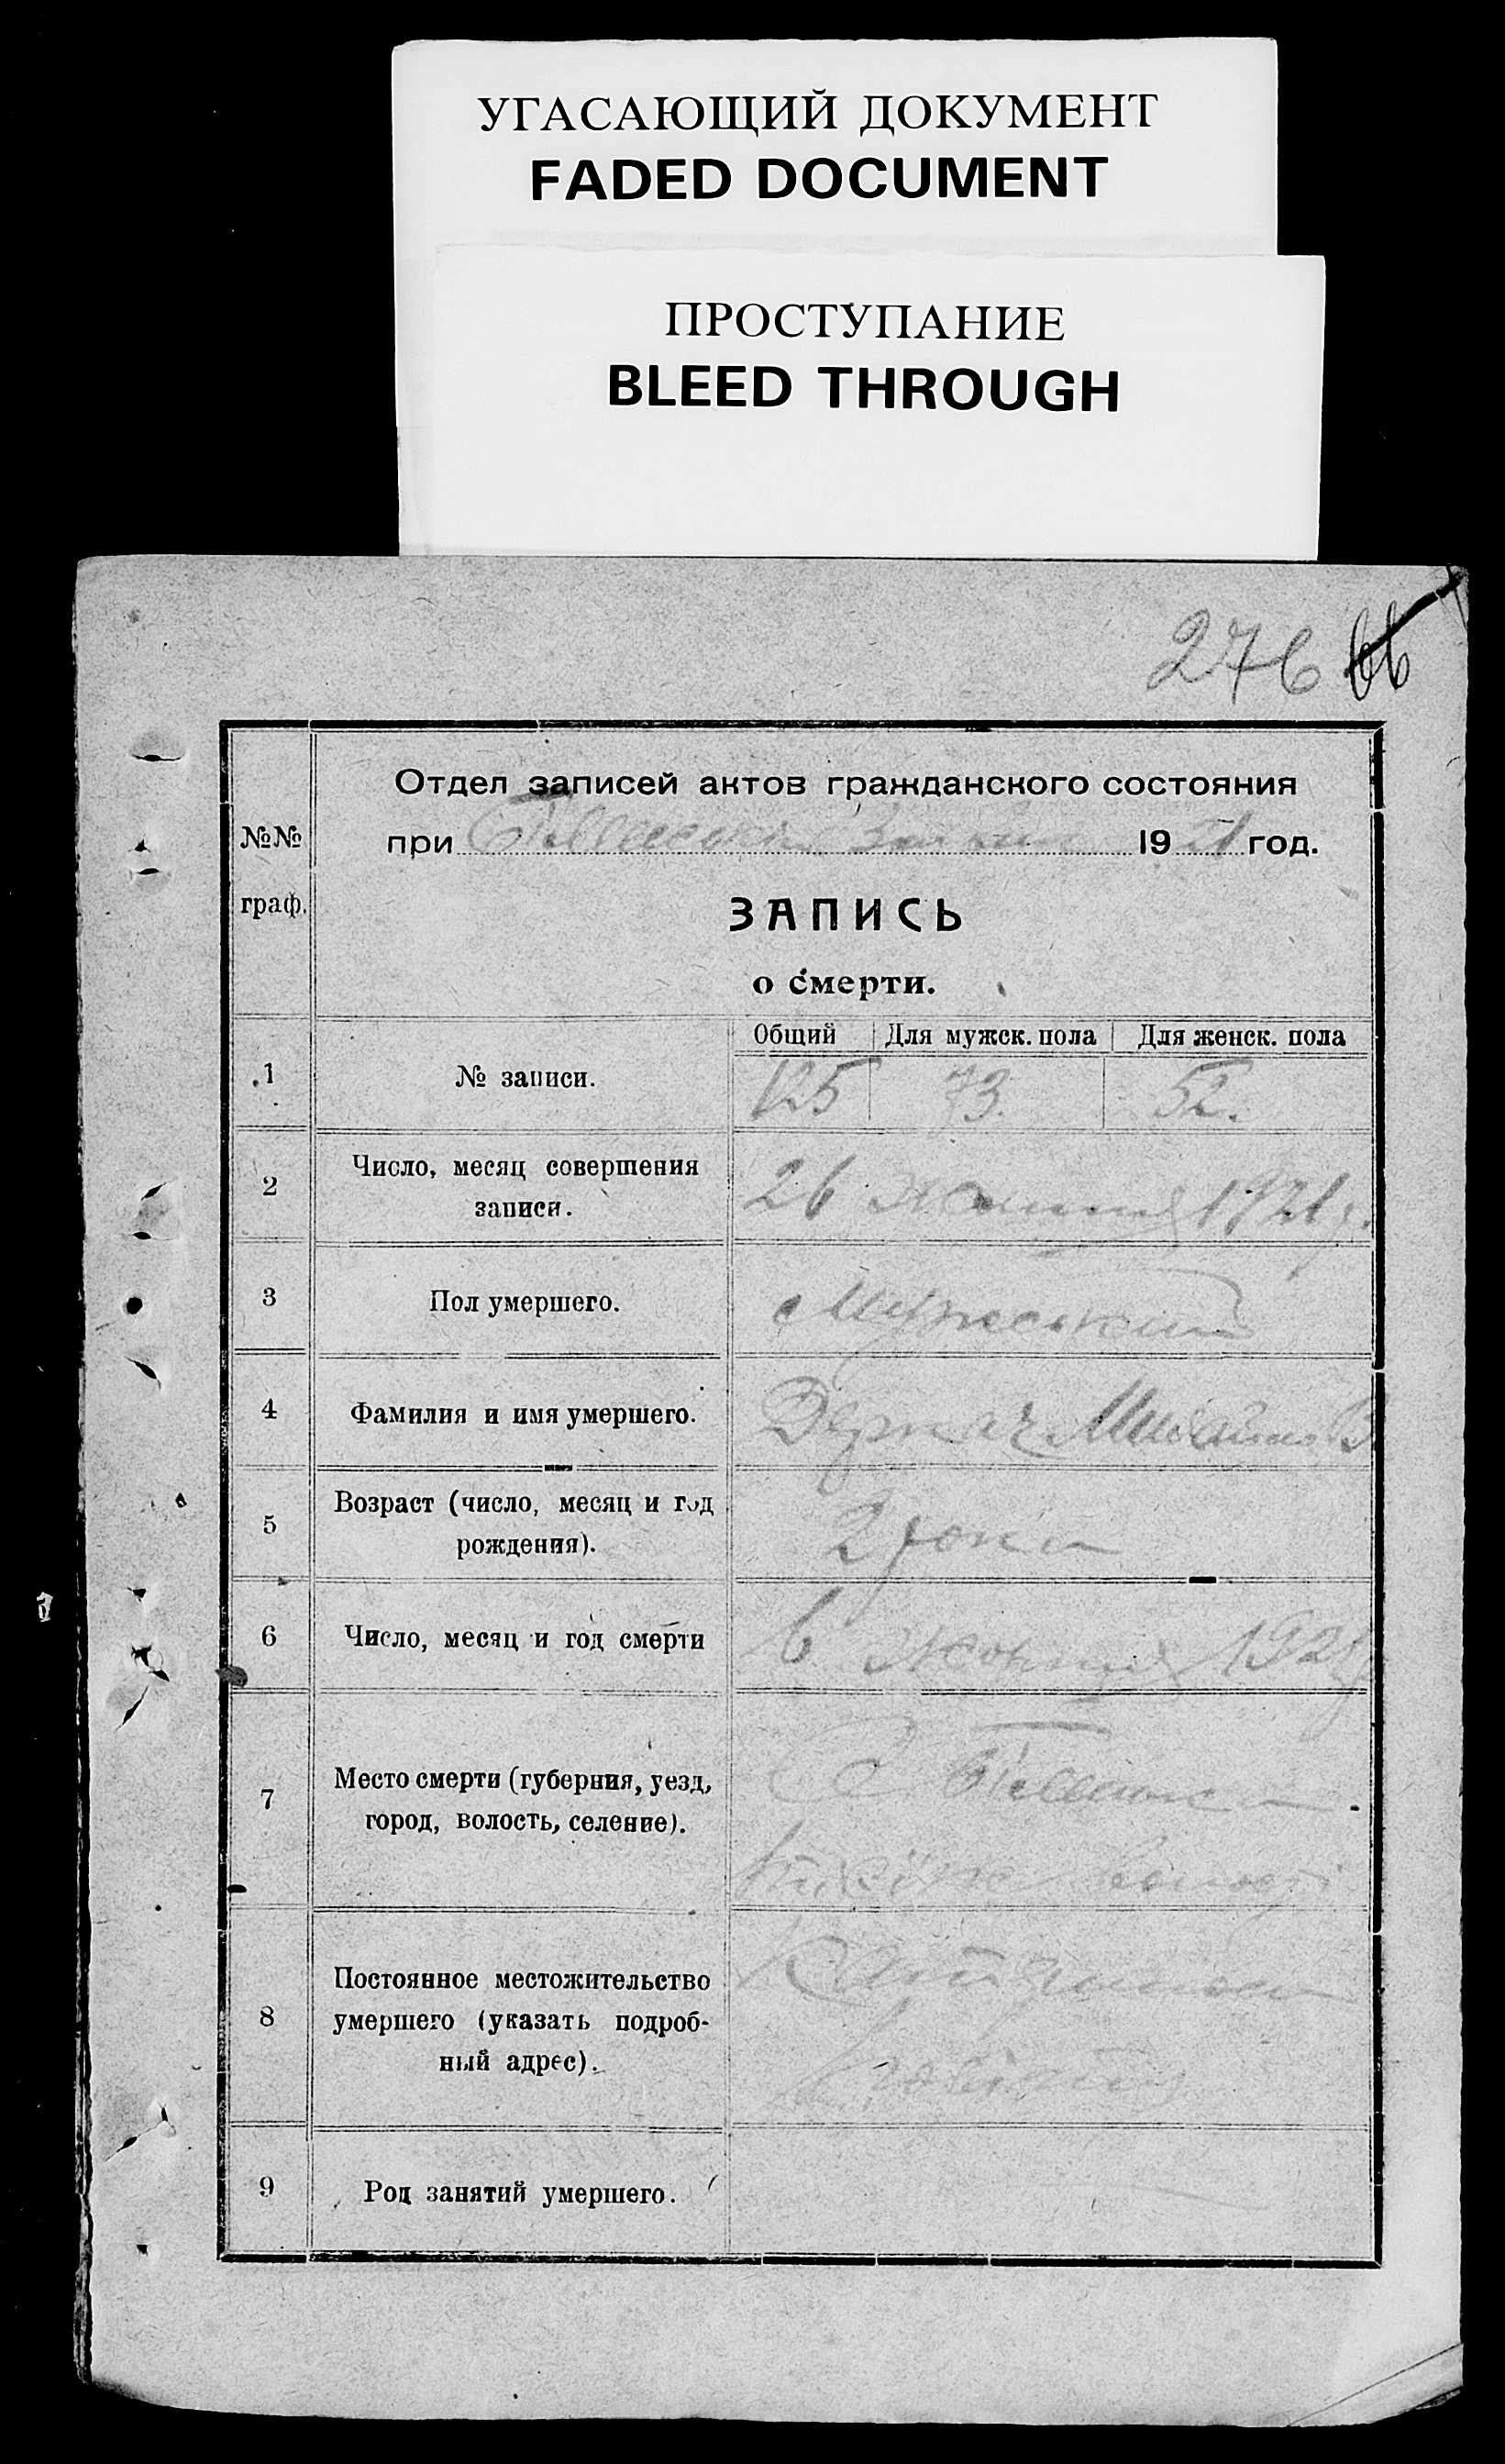 УГАСАЮЩИЙ ДОКУМЕНТ
FADED DOCUMENT
ПРОСТУПАНИЕ
BLEED THROUGH
276 66
№№ граф.
Отдел записей актов гражданского состояния
при 1921 год.
ЗАПИСЬ
о смерти.
Общий Для мужск. пола Для женск. пола
1 № записи. 125 73. 52.
2 Число, месяц совершения
записи.
26 жовтня 1921 р.
3 Пол умершего. Мужеський
4 Фамилия и имя умершего. Михайло В
5 Возраст (число, месяц и год
рождения).
2 роки
6 Число, месяц и год смерти 6 жовтня 1921р
7 Место смерти (губерния, уезд,
город, волость, селение).
С.
8 Постоянное местожительство
умершего (указать подроб-
ный адрес).
9 Род занятий умершего.